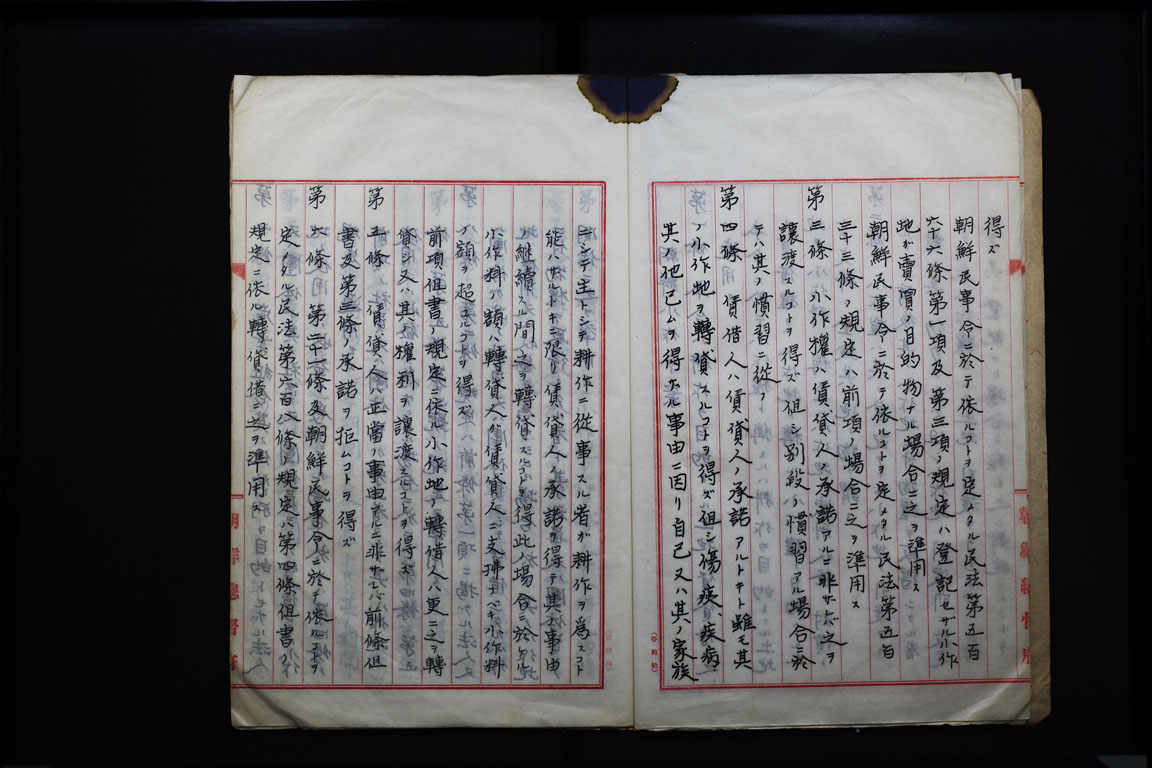 得ズ
朝鮮民事令ニ於テ依ルコトヲ定メタル民法第五百
六十六條第一項及第三項ノ規定ハ登記セザル小作
地ガ賣買ノ目的物ナル場合ニ之ヲ準用ス
朝鮮民事令ニ於テ依ルコトヲ定メタル民法第五百
三十三條ノ規定ハ前項ノ場合ニ之ヲ準用ス
第三條 小作權ハ賃貸人ノ承諾アルニ非ザレバ之ヲ
讓渡スルコトヲ得ズ但シ別段ノ慣習アル場合ニ於
テハ其ノ慣習ニ從フ
第四條 賃借人ハ賃貸人ノ承諾アルトキト雖モ其
ノ小作地ヲ轉貸スルコトヲ得ズ但シ傷痍、疾病
其ノ他已ムヲ得ザル事由ニ因リ自己又ハ其ノ家族
ニシテ主トシテ耕作ニ從事スル者ガ耕作ヲ爲スコト
能ハザルトキニ限リ賃貸人ノ承諾ヲ得テ其ノ事由
ノ繼續スル間之ヲ轉貸スルコトヲ得此ノ場合ニ於ケル
小作料ノ額ハ轉貸人ガ賃貸人ニ支拂フベキ小作料
ノ額ヲ超ユルコトヲ得ズ
前項但書ノ規定ニ依ル小作地ノ轉借人ハ更ニ之ヲ轉
貸シ又ハ其ノ權利ヲ讓渡スルコトヲ得ズ
第五條 賃貸人ハ正當ノ事由アルニ非ザレバ前條但
書及第三條ノ承諾ヲ拒ムコトヲ得ズ
第六條 第二十一條及朝鮮民事令ニ於テ依ルコトヲ
定メタル民法第六百八條ノ規定ハ第四條但書ノ
規定ニ依ル轉貸借ニ之ヲ準用ス
朝鮮總督府